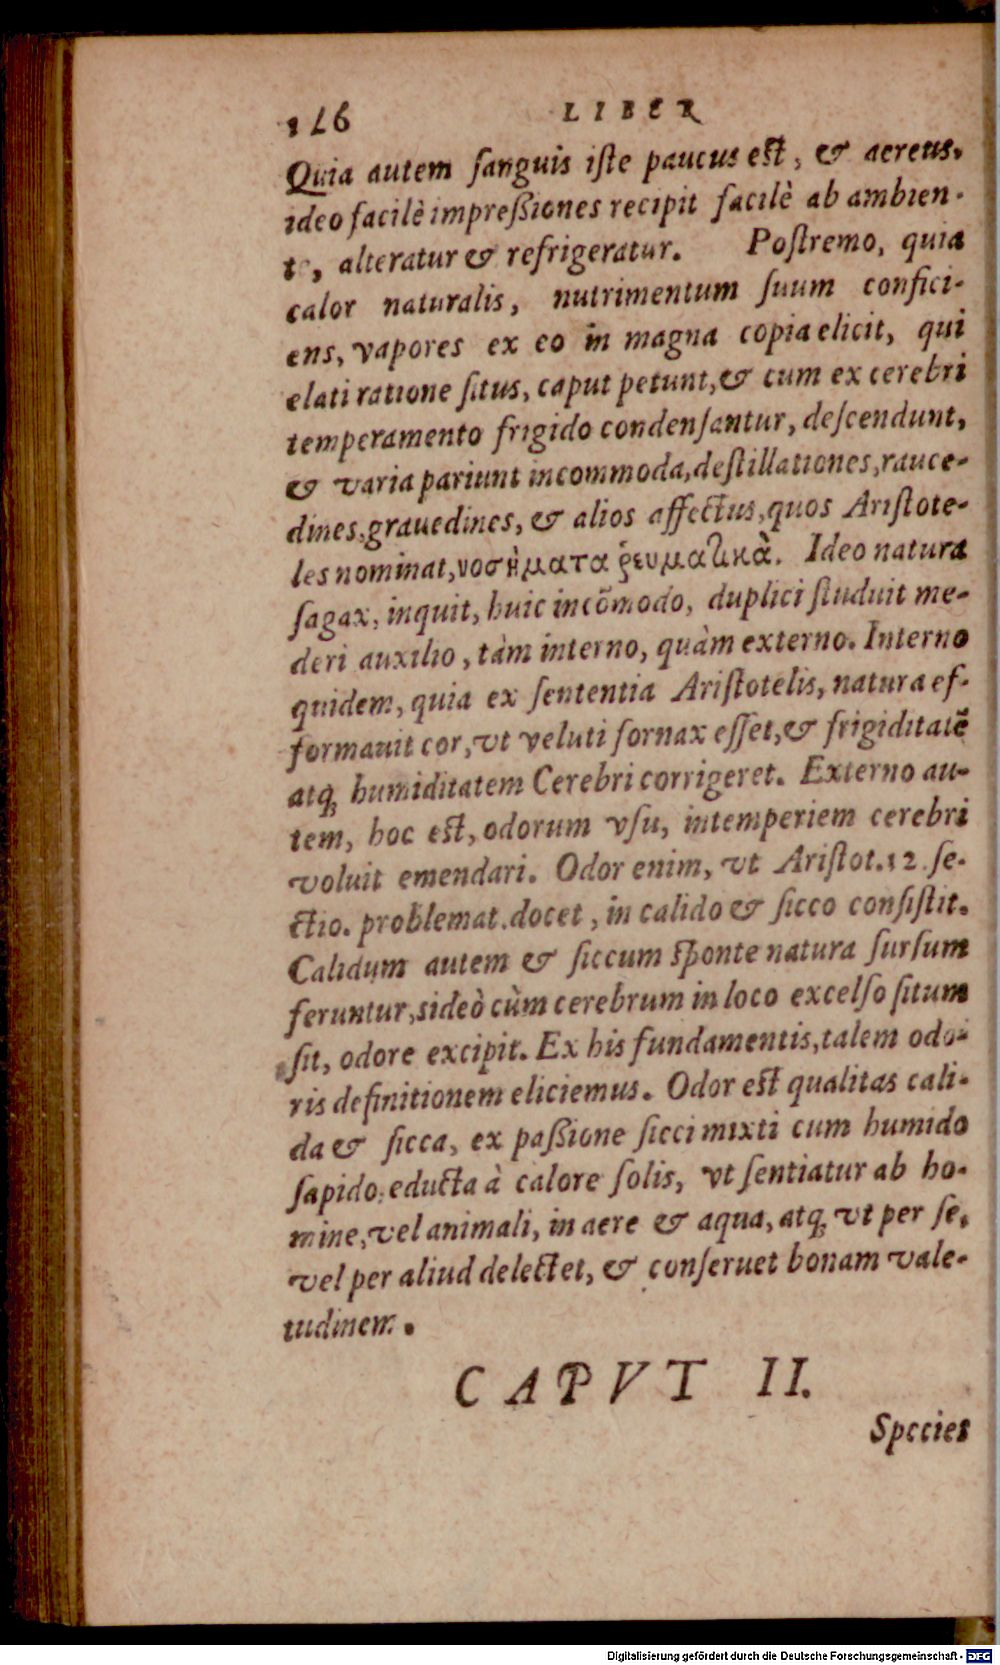 126 LIBER
Quia autem ſanguis iſte paucus eſt, & aereus,
ideo facilè impreßiones recipit facilè ab ambien-
te, alteratur & refrigeratur. Poſtremo, quia
calor naturalis, nutrimentum ſuum confici-
ens, vapores ex eo in magna copia elicit, qui
elati ratione ſitus, caput petunt, & cum ex cerebri
temperamento frigido condenſantur, deſcendunt,
& varia pariunt incommoda, deſtillationes, rauce-
dines, grauedines, & alios affectus, quos Ariſtote-
les nominat, νοσήματα ῥευματικὰ. Ideo natura
ſagax, inquit, huic incõmodo, duplici ſtuduit me-
deri auxilio, tàm interno, quàm externo. Interno
quidem, quia ex ſententia Ariſtotelis, natura ef-
formauit cor, vt veluti fornax eſſet, & frigiditatẽ
atq; humiditatem Cerebri corrigeret. Externo au-
tem, hoc eſt, odorum vſu, intemperiem cerebri
voluit emendari. Odor enim, vt Ariſtot. 12. ſe-
ctio. problemat. docet, in calido & ſicco conſiſtit.
Calidum autem & ſiccum ſponte natura ſurſum
feruntur, sideò cùm cerebrum in loco excelſo ſitum
ſit, odore excipit. Ex his fundamentis, talem odo-
ris definitionem eliciemus. Odor eſt qualitas cali-
da & ſicca, ex paßione ſicci mixti cum humido
ſapido, educta à calore ſolis, vt ſentiatur ab ho-
mine, vel animali, in aere & aqua, atq; vt per ſe,
vel per aliud delectet, & conſeruet bonam vale-
tudinem.
CAPVT II.
Species
Digitalisierung gefördert durch die Deutsche Forschungsgemeinschaft - DFG